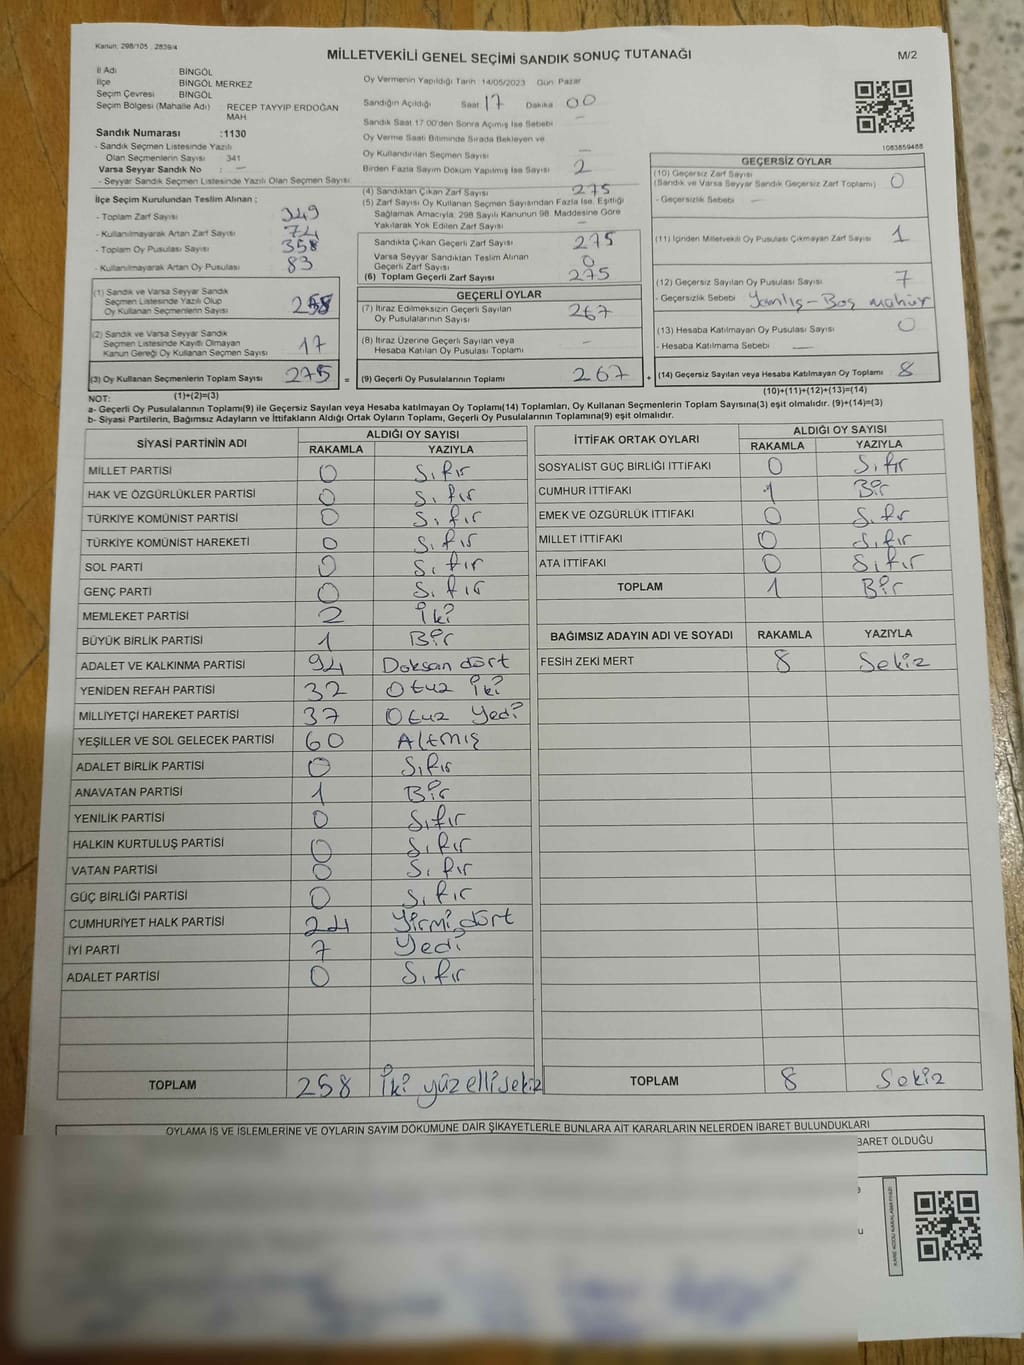 Kanun: 298/105 , 2839/4
MİLLETVEKİLİ GENEL SEÇİMİ SANDIK SONUÇ TUTANAĞI
M/2
İl Adı BİNGÖL
İlçe BİNGÖL MERKEZ
Seçim Çevresi BİNGÖL
Seçim Bölgesi (Mahalle Adı) RECEP TAYYIP ERDOĞAN MAH
Sandık Numarası :1130
- Sandık Seçmen Listesinde Yazılı
Olan Seçmenlerin Sayısı 341
Varsa Seyyar Sandık No : —
- Seyyar Sandık Seçmen Listesinde Yazılı Olan Seçmen Sayısı
İlçe Seçim Kurulundan Teslim Alınan ;
- Toplam Zarf Sayısı 349
- Kullanılmayarak Artan Zarf Sayısı 74
- Toplam Oy Pusulası Sayısı 358
- Kullanılmayarak Artan Oy Pusulası 83
(1) Sandık ve Varsa Seyyar Sandık
Seçmen Listesinde Yazılı Olup
Oy Kullanan Seçmen Sayısı 258
(2) Sandık ve Varsa Seyyar Sandık
Seçmen Listesinde Kayıtlı Olmayan
Kanun Gereği Oy Kullanan Seçmen Sayısı 17
(3) Oy Kullanan Seçmenlerin Toplam Sayısı 275 =
Oy Vermenin Yapıldığı Tarih 14/05/2023 Gün Pazar
Sandığın Açıldığı Saat 17 Dakika 00
Sandık Saat 17.00'den Sonra Açılmış İse Sebebi —
Oy Verme Saati Bitiminde Sırada Bekleyen ve
Oy Kullandırılan Seçmen Sayısı —
Birden Fazla Sayım Döküm Yapılmış İse Sayısı 2
(4) Sandıktan Çıkan Zarf Sayısı 275
(5) Zarf Sayısı Oy Kullanan Seçmen Sayısından Fazla İse, Eşitliği
Sağlamak Amacıyla; 298 Sayılı Kanunun 98. Maddesine Göre
Yakılarak Yok Edilen Zarf Sayısı —
Sandıkta Çıkan Geçerli Zarf Sayısı 275
Varsa Seyyar Sandıktan Teslim Alınan
Geçerli Zarf Sayısı 0
(6) Toplam Geçerli Zarf Sayısı 275
GEÇERLİ OYLAR
(7) İtiraz Edilmeksizin Geçerli Sayılan
Oy Pusulalarının Sayısı 267
(8) İtiraz Üzerine Geçerli Sayılan veya
Hesaba Katılan Oy Pusulası Toplamı —
(9) Geçerli Oy Pusulalarının Toplamı 267 +
1083859468
GEÇERSİZ OYLAR
(10) Geçersiz Zarf Sayısı
(Sandık ve Varsa Seyyar Sandık Geçersiz Zarf Toplamı) 0
- Geçersizlik Sebebi —
(11) İçinden Milletvekili Oy Pusulası Çıkmayan Zarf Sayısı 1
(12) Geçersiz Sayılan Oy Pusulası Sayısı 7
- Geçersizlik Sebebi Yanlış-Boş mühür
(13) Hesaba Katılmayan Oy Pusulası Sayısı 0
- Hesaba Katılmama Sebebi —
(14) Geçersiz Sayılan veya Hesaba Katılmayan Oy Toplamı 8
NOT: (1)+(2)=(3) (10)+(11)+(12)+(13)=(14)
a- Geçerli Oy Pusulalarının Toplamı(9) ile Geçersiz Sayılan veya Hesaba katılmayan Oy Toplamı(14) Toplamları, Oy Kullanan Seçmenlerin Toplam Sayısına(3) eşit olmalıdır. (9)+(14)=(3)
b- Siyasi Partilerin, Bağımsız Adayların ve İttifakların Aldığı Ortak Oyların Toplamı, Geçerli Oy Pusulalarının Toplamına(9) eşit olmalıdır.
SİYASİ PARTİNİN ADI ALDIĞI OY SAYISI
RAKAMLA YAZIYLA
MİLLET PARTİSİ 0 Sıfır
HAK VE ÖZGÜRLÜKLER PARTİSİ 0 Sıfır
TÜRKİYE KOMÜNİST PARTİSİ 0 Sıfır
TÜRKİYE KOMÜNİST HAREKETİ 0 Sıfır
SOL PARTİ 0 Sıfır
GENÇ PARTİ 0 Sıfır
MEMLEKET PARTİSİ 2 İki
BÜYÜK BİRLİK PARTİSİ 1 Bir
ADALET VE KALKINMA PARTİSİ 94 Doksan dört
YENİDEN REFAH PARTİSİ 32 Otuz İki
MİLLİYETÇİ HAREKET PARTİSİ 37 Otuz Yedi
YEŞİLLER VE SOL GELECEK PARTİSİ 60 Altmış
ADALET BİRLİK PARTİSİ 0 Sıfır
ANAVATAN PARTİSİ 1 Bir
YENİLİK PARTİSİ 0 Sıfır
HALKIN KURTULUŞ PARTİSİ 0 Sıfır
VATAN PARTİSİ 0 Sıfır
GÜÇ BİRLİĞİ PARTİSİ 0 Sıfır
CUMHURİYET HALK PARTİSİ 24 Yirmi dört
İYİ PARTİ 7 Yedi
ADALET PARTİSİ 0 Sıfır
TOPLAM 258 İki yüz elli sekiz
İTTİFAK ORTAK OYLARI ALDIĞI OY SAYISI
RAKAMLA YAZIYLA
SOSYALİST GÜÇ BİRLİĞİ İTTİFAKI 0 Sıfır
CUMHUR İTTİFAKI 1 Bir
EMEK VE ÖZGÜRLÜK İTTİFAKI 0 Sıfır
MİLLET İTTİFAKI 0 Sıfır
ATA İTTİFAKI 0 Sıfır
TOPLAM 1 Bir
BAĞIMSIZ ADAYIN ADI VE SOYADI RAKAMLA YAZIYLA
FESİH ZEKİ MERT 8 Sekiz
TOPLAM 8 Sekiz
OYLAMA İŞ VE İŞLEMLERİNE VE OYLARIN SAYIM DÖKÜMÜNE DAİR ŞİKAYETLERLE BUNLARA AİT KARARLARIN NELERDEN İBARET BULUNDUKLARI
BARET OLDUĞU